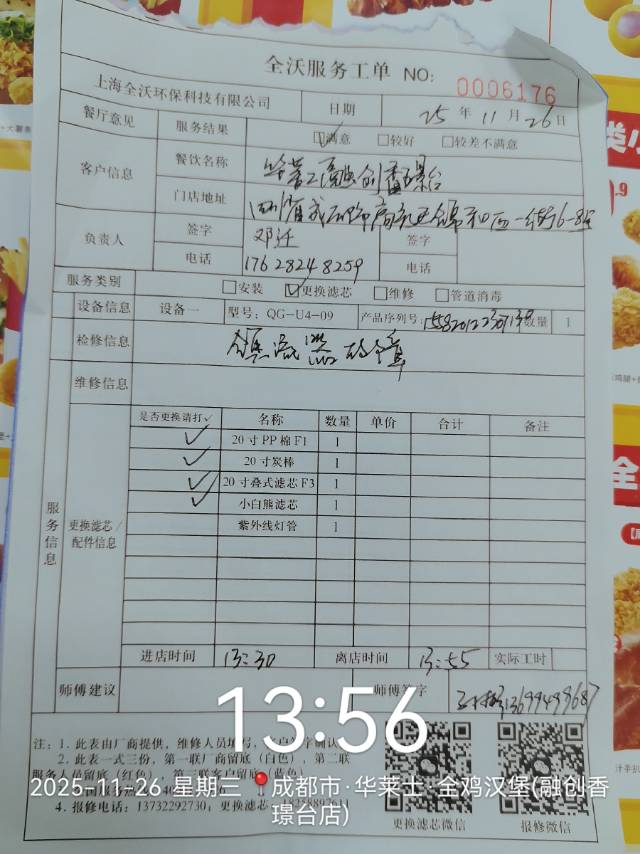 全沃服务工单 NO: 0006176
上海全沃环保科技有限公司 日期 25 年 11 月 26 日
餐厅意见 服务结果 ☑满意 □较好 □较差不满意
客户信息 餐饮名称 华莱士融创香璟台
门店地址
负责人 签字 签字
电话 17628248259 电话
服务类别 □安装 ☑更换滤芯 □维修 □管道消毒
设备信息 设备一 型号: QG-U4-09 产品序列号: 数量 1
检修信息
维修信息
服务信息
更换滤芯/配件信息
是否更换请打✓ 名称 数量 单价 合计 备注
✓ 20寸PP棉F1 1
✓ 20寸炭棒 1
✓ 20寸叠式滤芯F3 1
✓ 小白熊滤芯 1
紫外线灯管 1
进店时间 13:30 离店时间 13:55 实际工时
师傅建议 师傅签字
13:56
注: 1. 此表由厂商提供, 维修人员填写,
2. 此表一式三份, 第一联厂商留底(白色), 第二联
服务人员留底(红色), 第三联客户留底(蓝色)
2025-11-26 星期三 成都市·华莱士·全鸡汉堡(融创香
璟台店)
4. 报修电话: 13732292730; 更换滤芯:
更换滤芯微信 报修微信